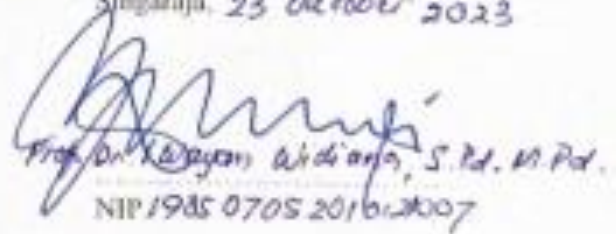 Singaraja, 23 Oktober 2023
Prof. Dr. I Wayan Widiana, S.Pd. M.Pd.
NIP 19850705 201012 1007